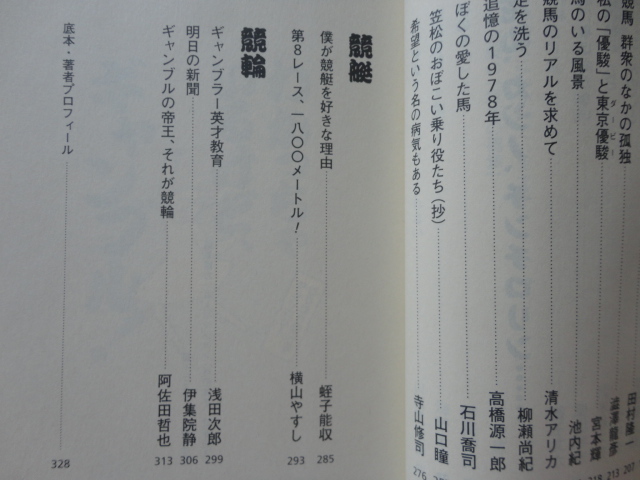 競馬 群衆のなかの孤独 田村隆一 207
私の「優駿」と東京優駿 ダービー 宮本輝
馬のいる風景 池内紀
競馬のリアルを求めて 清水アリカ
足を洗う 柳瀬尚紀
追憶の1978年 高橋源一郎
ぼくの愛した馬 石川喬司
笠松のおぼこい乗り役たち（抄） 山口瞳
希望という名の病気もある 寺山修司 276
競艇
僕が競艇を好きな理由 蛭子能収 285
第8レース、一八〇〇メートル！ 横山やすし 293
競輪
ギャンブラー英才教育 浅田次郎 299
明日の新聞 伊集院静 306
ギャンブルの帝王、それが競輪 阿佐田哲也 313
底本・著者プロフィール 328